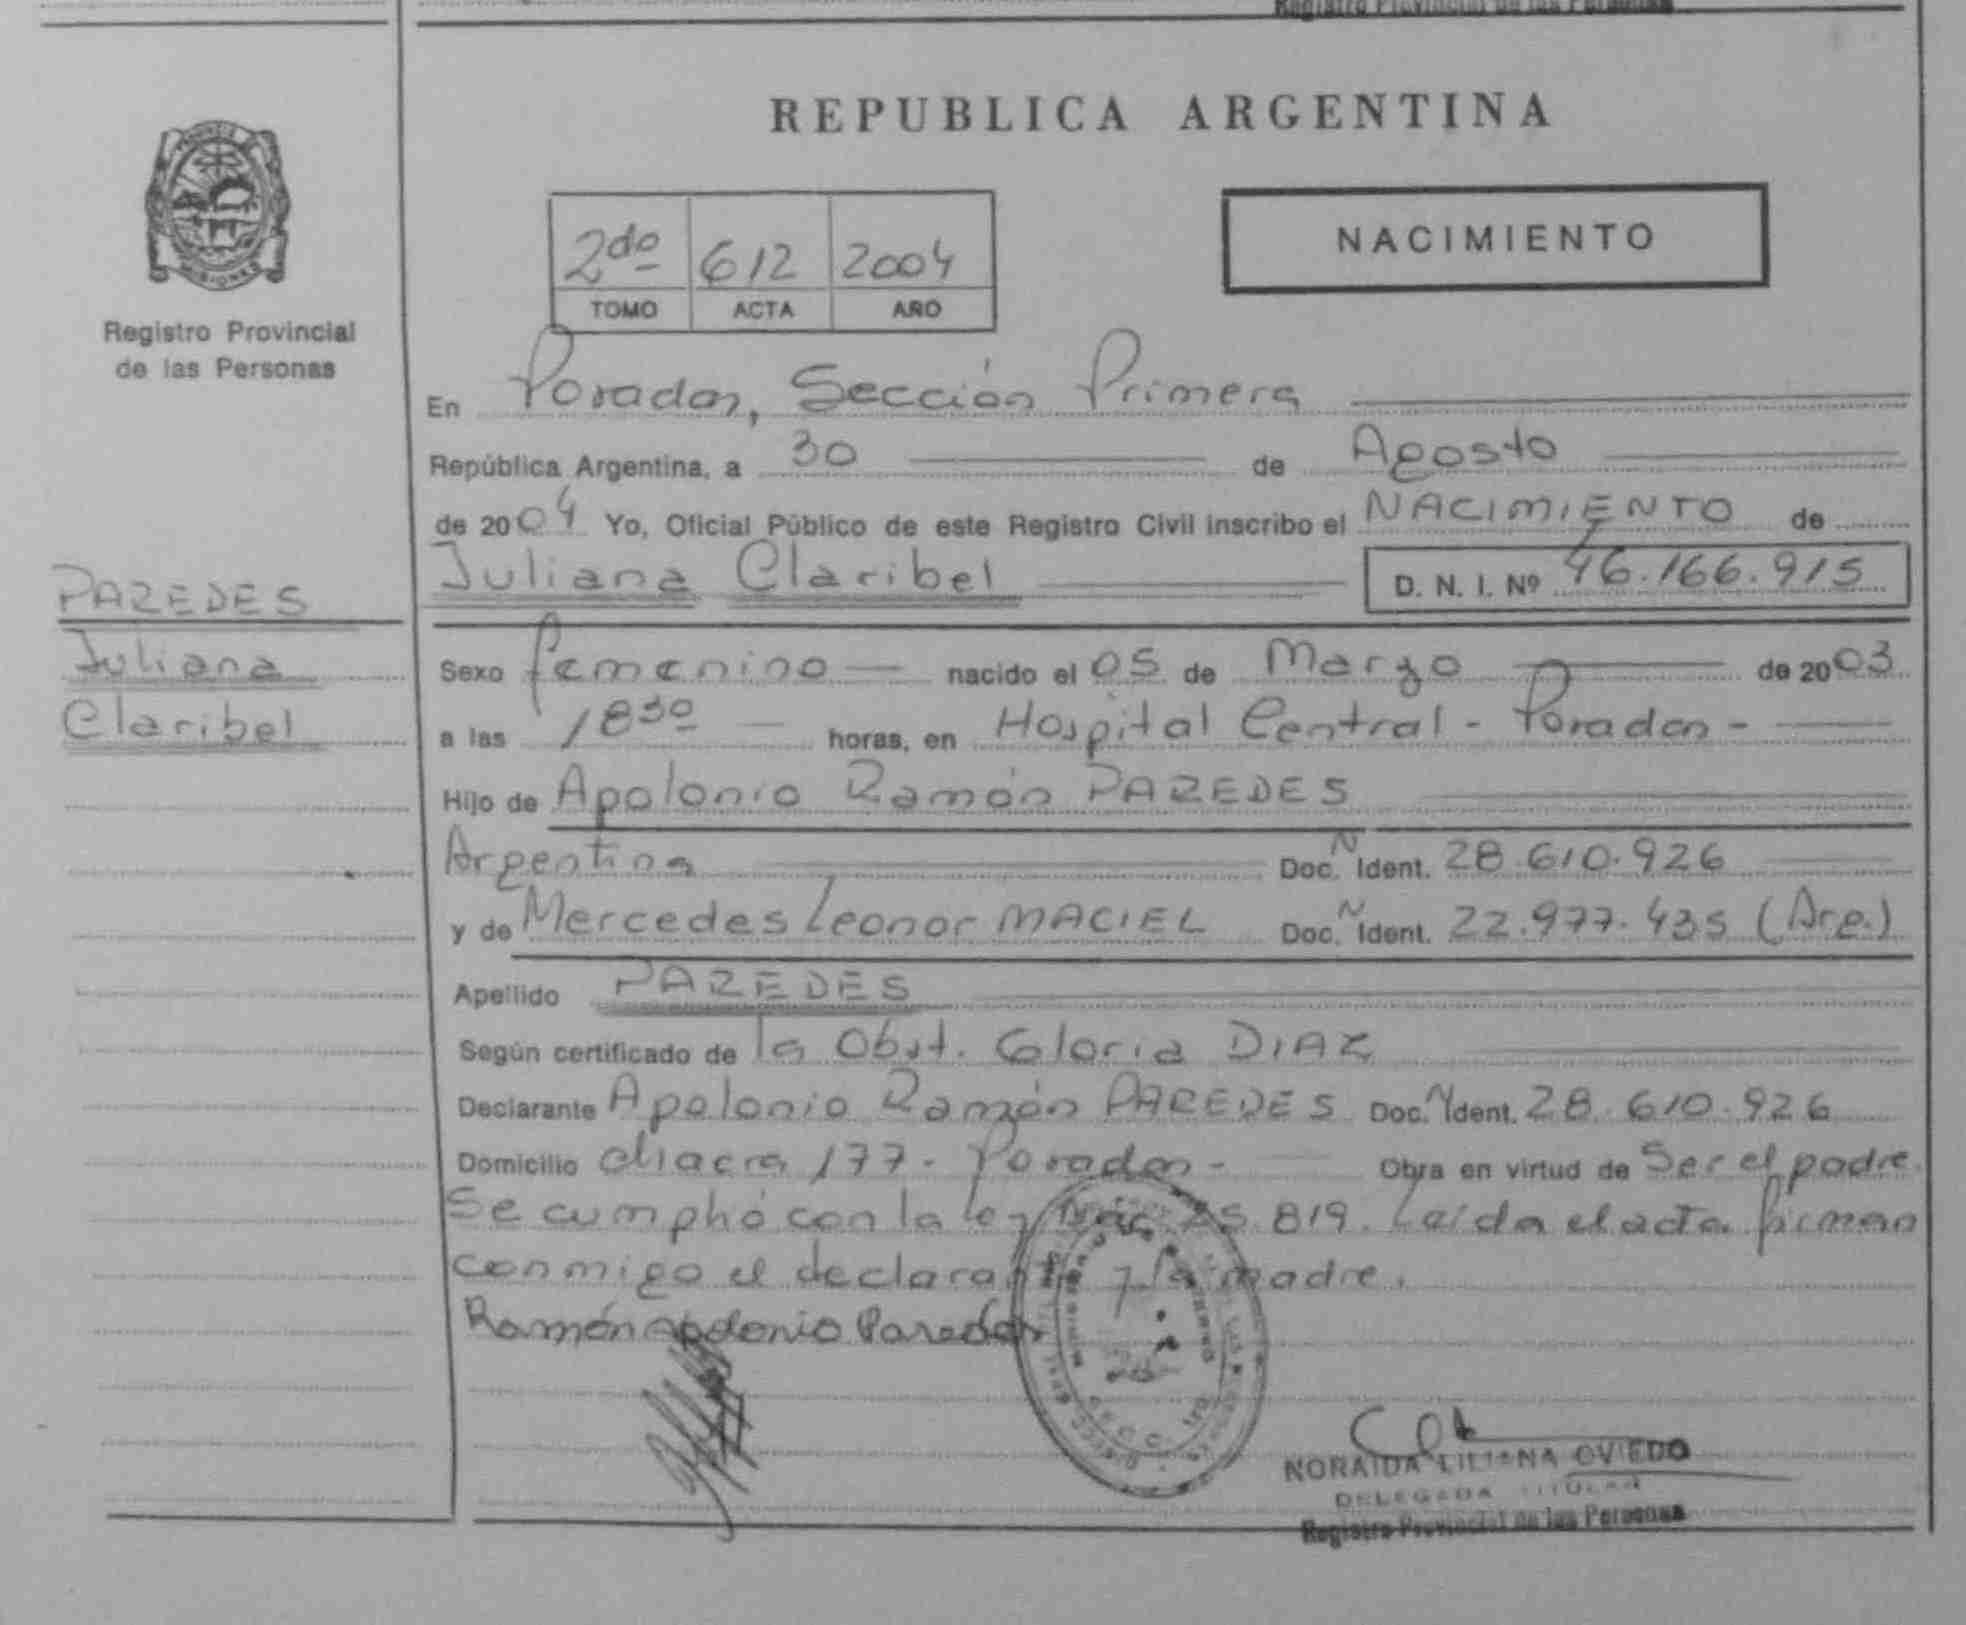 Registro Provincial de las Personas
REPUBLICA ARGENTINA
MISIONES
Registro Provincial
de las Personas
2do 612 2004
TOMO ACTA AÑO
NACIMIENTO
En Posadas, Sección Primera
República Argentina, a 30 de Agosto
de 2004 Yo, Oficial Público de este Registro Civil inscribo el NACIMIENTO de
Juliana Claribel D. N. I. Nº 46.166.915
PAREDES
Juliana
Claribel
Sexo femenino nacido el 05 de Marzo de 2003
a las 18 30 horas, en Hospital Central - Posadas -
Hijo de Apolonio Ramón PAREDES
Argentina Doc. N Ident. 28.610.926
y de Mercedes Leonor MACIEL Doc. N Ident. 22.977.435 (Arg.)
Apellido PAREDES
Según certificado de la Obst. Gloria DIAZ
Declarante Apolonio Ramón PAREDES Doc. N Ident. 28.610.926
Domicilio Chacra 177 - Posadas - Obra en virtud de Ser el padre.
Se cumplió con la ley Nac 25.819. Leída el acta firman
conmigo el declarante y la madre.
Ramón apolonio Paredes
NORAIDA LILIANA OVIEDO
DELEGADA TITULAR
Registro Provincial de las Personas